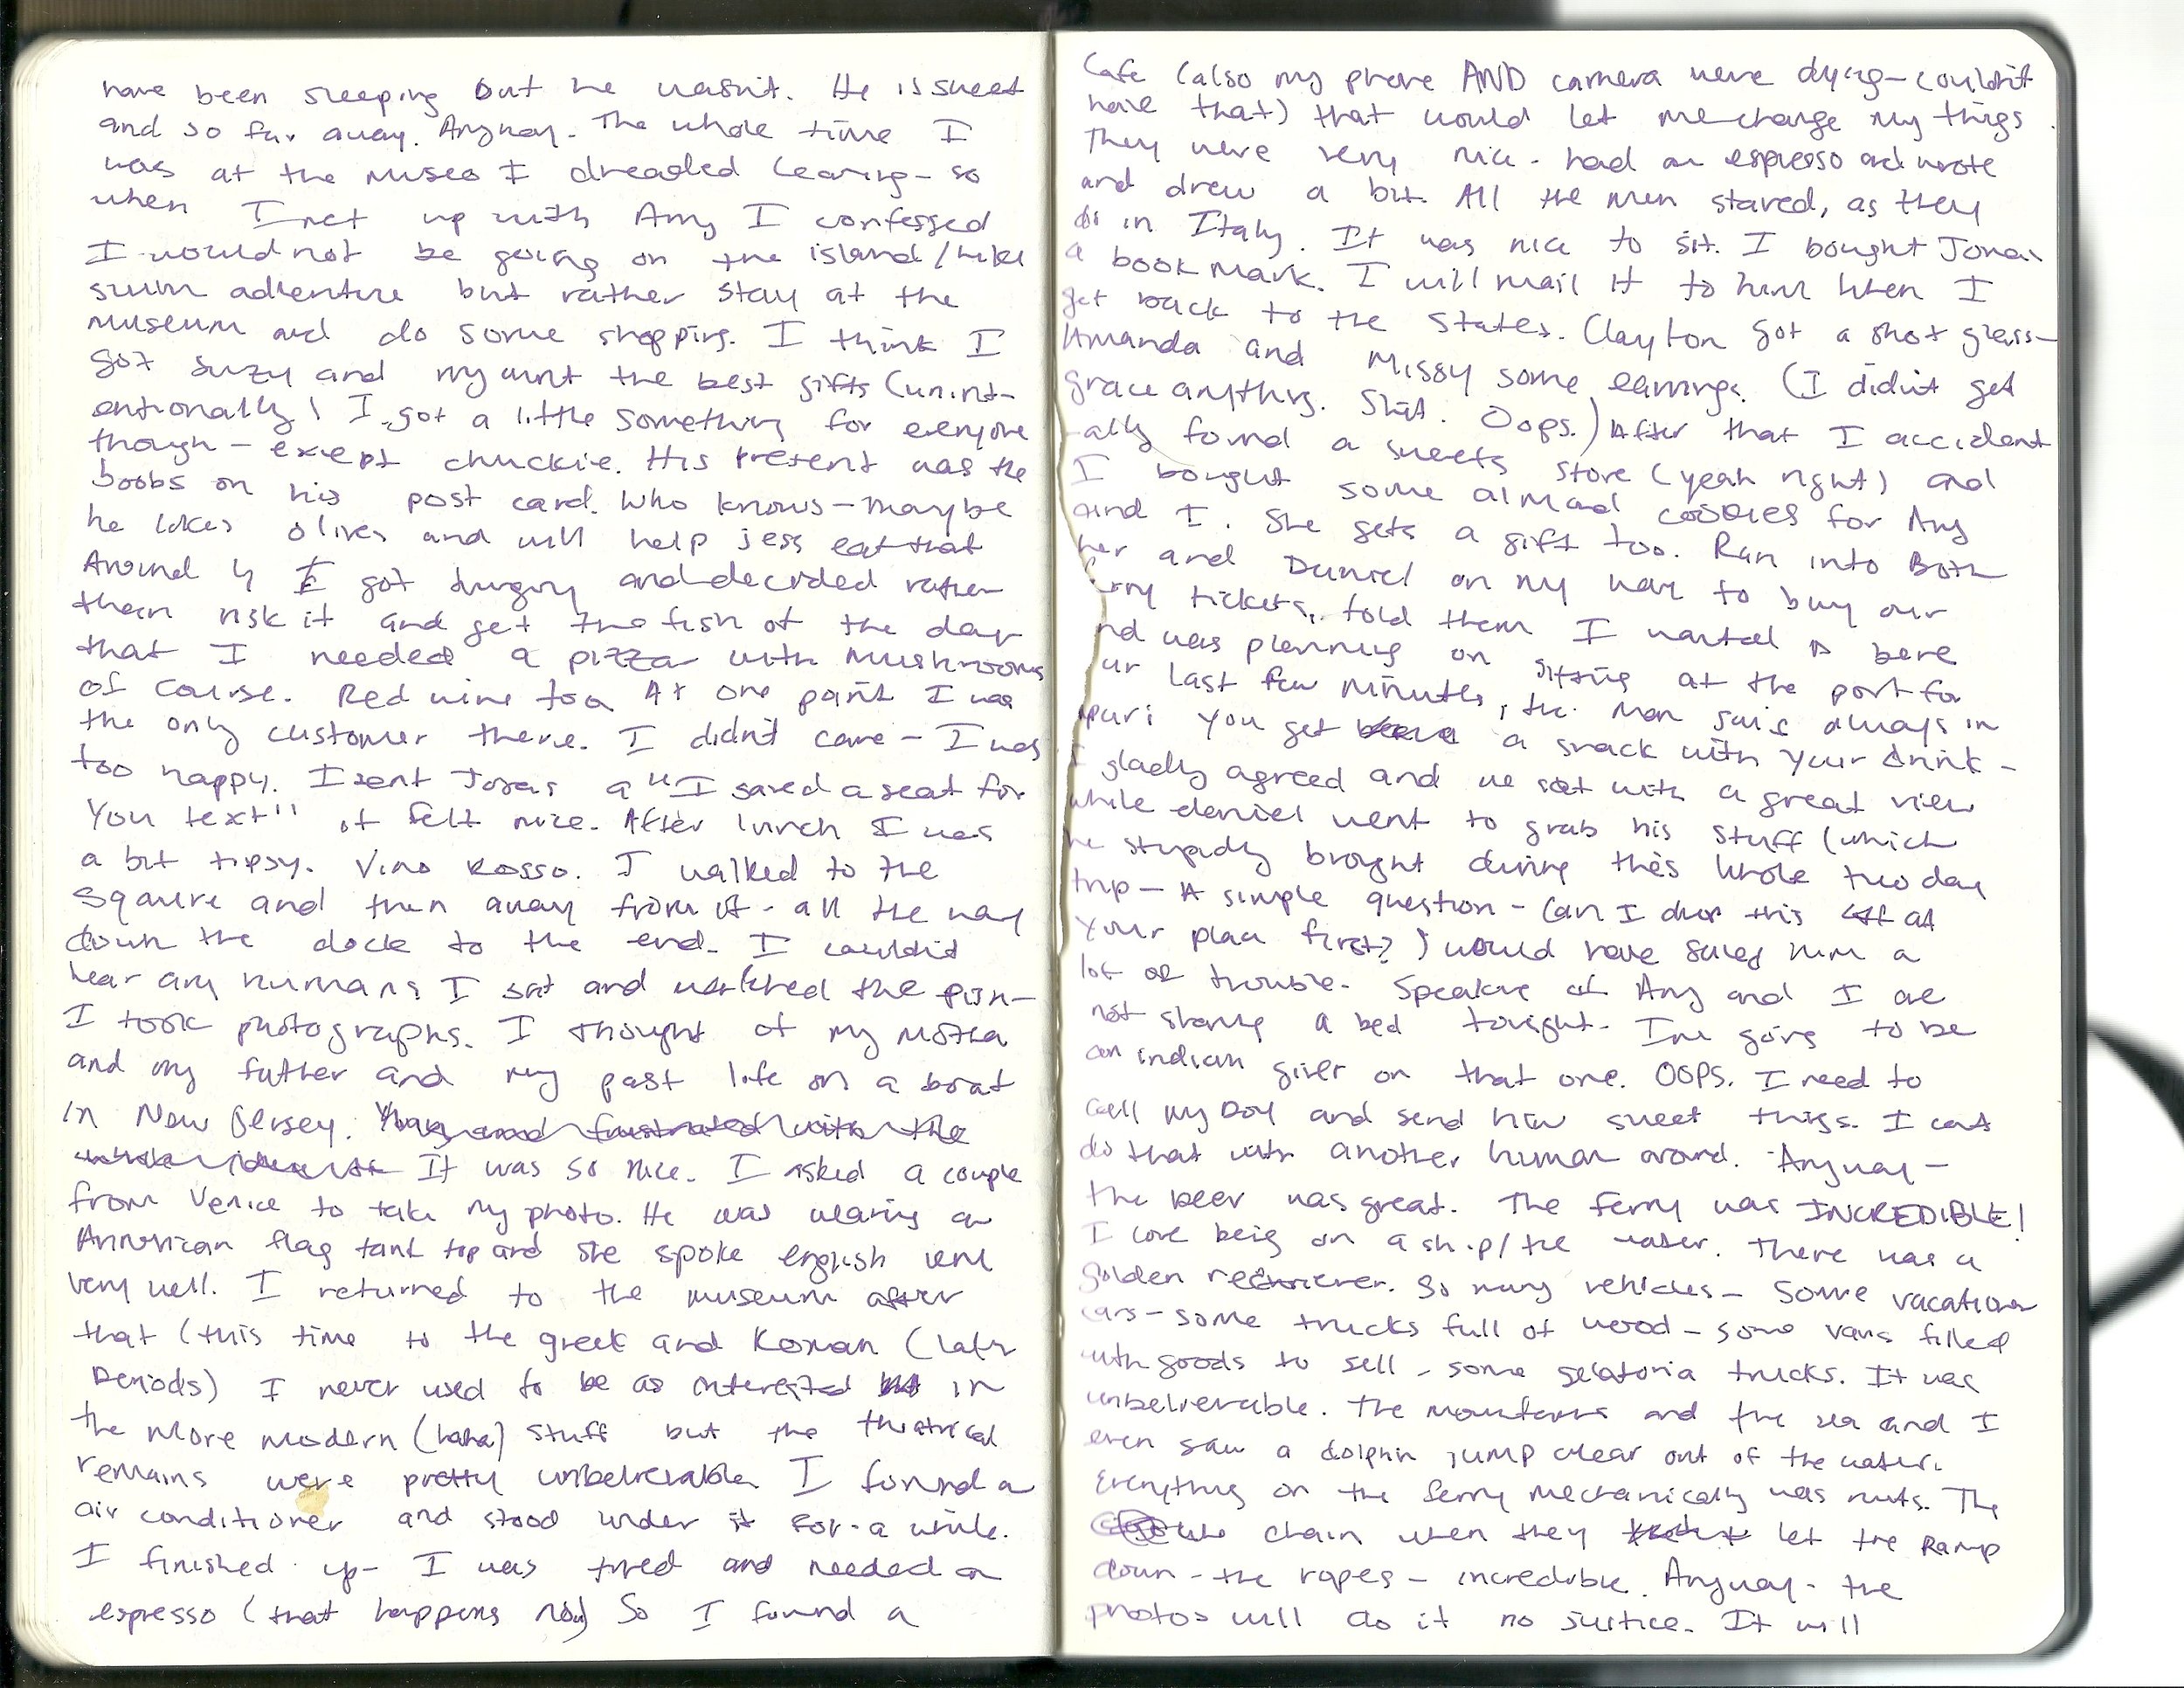 have been sleeping but he wasn't. He is sweet
and so far away. Anyway. The whole time I
was at the museo I dreaded leaving - so
when I met up with Amy I confessed
I would not be going on the island/hike
swim adventure but rather stay at the
museum and do some shopping. I think I
got Suzy and my aunt the best gifts (unint-
entionally! I got a little something for everyone
though - except chuckie. His present was the
boobs on his post card. Who knows - maybe
he likes olives and will help jess eat that
Around 4 I got hungry and decided rather
than risk it and get the fish of the day
that I needed a pizza with mushrooms
of course. Red wine too. At one point I was
the only customer there. I didn't care - I was
too happy. I sent Jonas a "I saved a seat for
you text" it felt nice. After lunch I was
a bit tipsy. Vino Rosso. I walked to the
square and then away from it - all the way
down the dock to the end. I couldn't
hear any humans I sat and watched the
I took photographs. I thought of my mother
and my father and my past life on a boat
in New Jersey. Young and frustrated with the
It was so nice. I asked a couple
from Venice to take my photo. He was wearing an
American flag tank top and she spoke english
very well. I returned to the museum after
that (this time to the greek and Roman (later
Periods) I never used to be as interested in
the more modern (haha) stuff but the theatrical
remains were pretty unbelievable. I found a
air conditioner and stood under it for a while.
I finished up - I was tired and needed an
espresso (that happens now) So I found a
Cafe (also my phone AND camera were dying - couldn't
have that) that would let me charge my things.
They were very nice. had an espresso and wrote
and drew a bit. All the men stared, as they
do in Italy. It was nice to sit. I bought Jonas
a bookmark. I will mail it to him when I
get back to the States. Clayton got a shot glass -
Amanda and Missy some earrings. (I didn't get
grace anything. Shit. Oops.) After that I accident
-ally found a sweets store (yeah right) and
I bought some almond cookies for Amy
and I. She gets a gift too. Ran into Both
her and Daniel on my way to buy our
ferry tickets, told them I wanted a beer
and was planning on sitting at the port for
our last few minutes, the man said always in
you get a snack with your drink -
I gladly agreed and we sat with a great view
while daniel went to grab his stuff (which
he stupidly brought during this whole two day
trip - A simple question - Can I drop this off at
your place first?) would have saved him a
lot of trouble. Speaking of Amy and I are
not sharing a bed tonight. I'm going to be
an indian giver on that one. OOPS. I need to
call my boy and send him sweet things. I cant
do that with another human around. Anyway -
the beer was great. The ferry was INCREDIBLE!
I love being on a ship/the water. There was a
golden retriever. So many vehicles - some vacation
cars - some trucks full of wood - some vans filled
with goods to sell - some gelatoria trucks. It was
unbelievable. The mountains and the sea and I
even saw a dolphin jump clear out of the water.
Everything on the ferry mechanically was nuts. The
chain when they let the Ramp
down - the ropes - incredible. Anyway - the
photos will do it no justice. It will